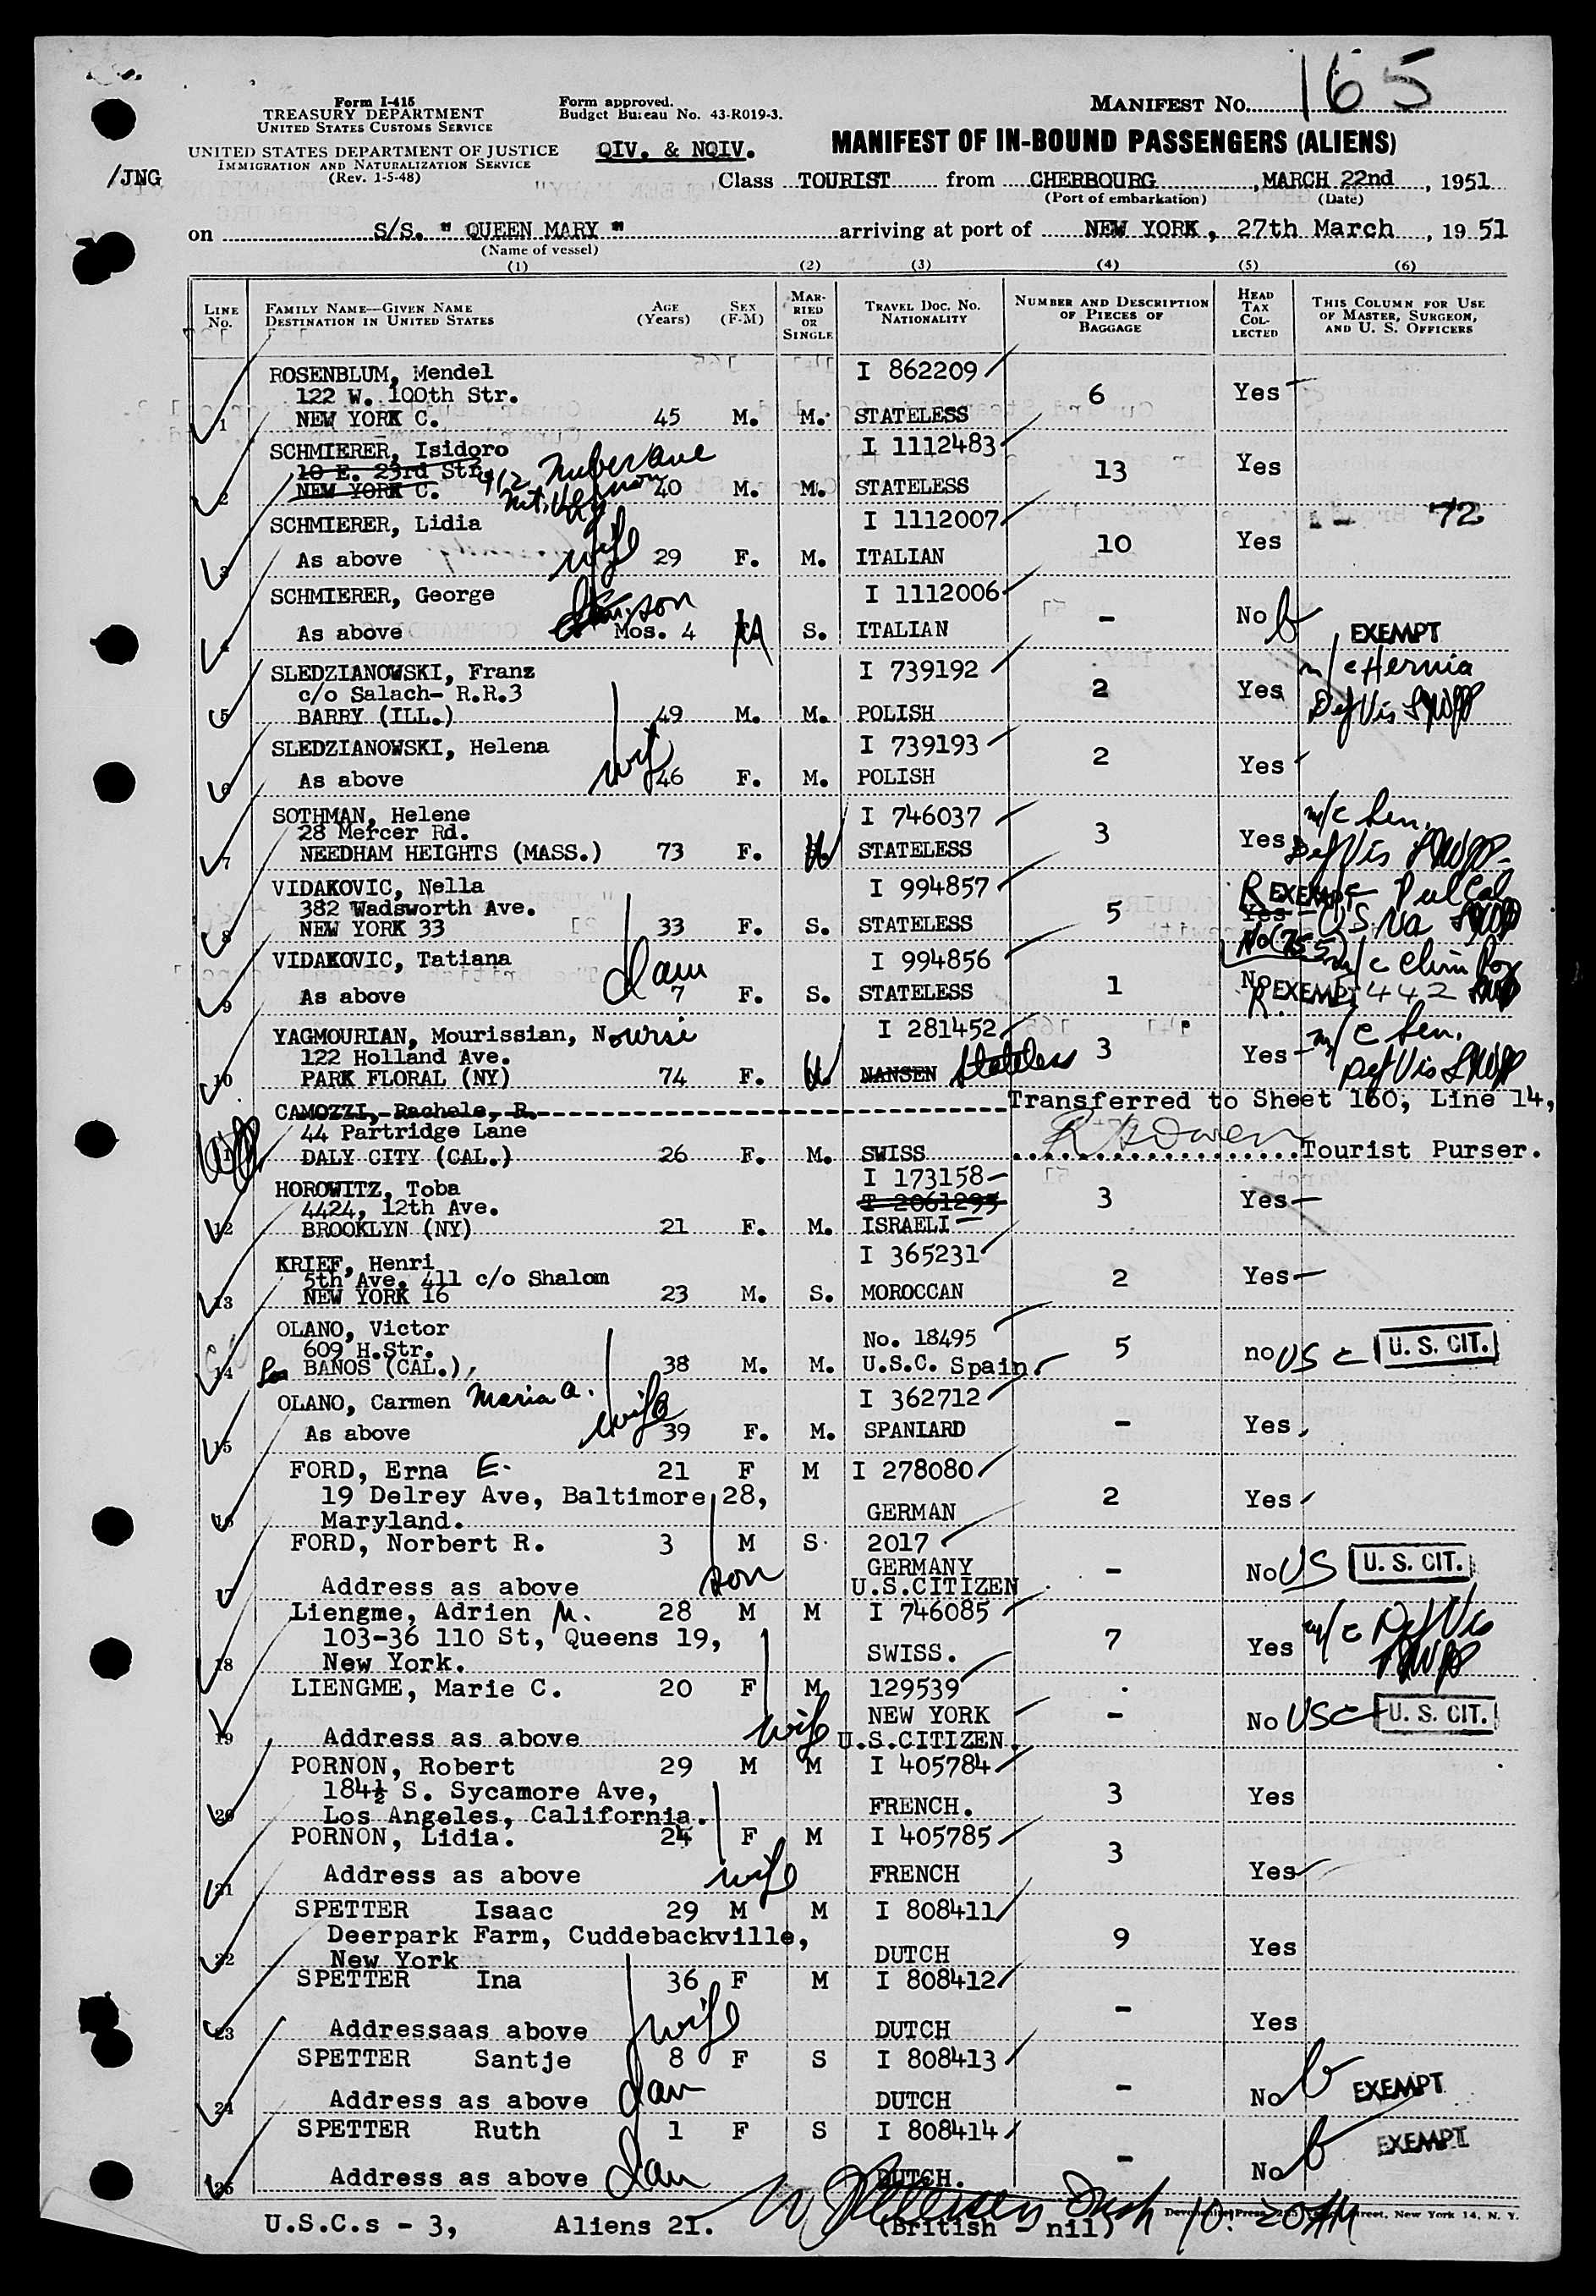 165
Form I-415
TREASURY DEPARTMENT
UNITED STATES CUSTOMS SERVICE
Form approved.
Budget Bureau No. 43-R019-3.
MANIFEST No.
UNITED STATES DEPARTMENT OF JUSTICE
IMMIGRATION AND NATURALIZATION SERVICE
(Rev. 1-5-48)
/JNG
QIV. & NQIV.
MANIFEST OF IN-BOUND PASSENGERS (ALIENS)
Class TOURIST from CHERBOURG, MARCH 22nd, 1951
(Port of embarkation) (Date)
on S/S. "QUEEN MARY" arriving at port of NEW YORK, 27th March, 1951
(Name of vessel)
(1) (2) (3) (4) (5) (6)
LINE No. FAMILY NAME—GIVEN NAME DESTINATION IN UNITED STATES AGE (Years) SEX (F-M) MARRIED OR SINGLE TRAVEL DOC. NO. NATIONALITY NUMBER AND DESCRIPTION OF PIECES OF BAGGAGE HEAD TAX COLLECTED THIS COLUMN FOR USE OF MASTER, SURGEON, AND U. S. OFFICERS
ROSENBLUM, Mendel I 862209
122 W. 100th Str. 6 Yes
1 NEW YORK C. 45 M. M. STATELESS
SCHMIERER, Isidoro I 1112483
10 E. 23rd Str. 912 Ave 13 Yes
2 NEW YORK C. Mt. Vernon 40 M. M. STATELESS
SCHMIERER, Lidia I 1112007 72
3 As above wife 29 F. M. ITALIAN 10 Yes
SCHMIERER, George son I 1112006 No
4 As above Mos. 4 M S. ITALIAN - EXEMPT
SLEDZIANOWSKI, Franz I 739192 m/c Hernia
c/o Salach- R.R.3 2 Yes Def Vis
5 BARRY (ILL.) 49 M. M. POLISH
SLEDZIANOWSKI, Helena wife I 739193 2
6 As above 46 F. M. POLISH Yes
SOTHMAN, Helene I 746037 m/c Sen.
28 Mercer Rd. 3 Yes Def Vis
7 NEEDHAM HEIGHTS (MASS.) 73 F. W STATELESS
VIDAKOVIC, Nella I 994857 R EXEMPT
382 Wadsworth Ave. 5 Yes
8 NEW YORK 33 33 F. S. STATELESS
VIDAKOVIC, Tatiana dau I 994856
9 As above 7 F. S. STATELESS 1 No R EXEMPT 442
YAGMOURIAN, Mourissian, Noursi I 281452 m/c Sen.
122 Holland Ave. 3 Yes Def Vis
10 PARK FLORAL (NY) 74 F. W NANSEN Stateless
CAMOZZI, Rachele, R. Transferred to Sheet 160, Line 14,
44 Partridge Lane R H Owen
11 DALY CITY (CAL.) 26 F. M. SWISS Tourist Purser.
HOROWITZ, Toba I 173158
4424, 12th Ave. T 2061295 3 Yes
12 BROOKLYN (NY) 21 F. M. ISRAELI
KRIEF, Henri I 365231
5th Ave. 411 c/o Shalom 2 Yes
13 NEW YORK 16 23 M. S. MOROCCAN
OLANO, Victor No. 18495
609 H.Str. 5 no USC U. S. CIT.
14 Los BANOS (CAL.), 38 M. M. U.S.C. Spain.
OLANO, Carmen Maria A. wife I 362712
15 As above 39 F. M. SPANIARD - Yes
FORD, Erna E. 21 F M I 278080
19 Delrey Ave, Baltimore 28, 2 Yes
16 Maryland. GERMAN
FORD, Norbert R. 3 M S 2017
GERMANY - No US U. S. CIT.
17 Address as above son U.S.CITIZEN
Liengme, Adrien M. 28 M M I 746085
103-36 110 St, Queens 19, 7 Yes m/c Def Vis
18 New York. SWISS.
LIENGME, Marie C. 20 F M 129539
NEW YORK - No USC U. S. CIT.
19 Address as above wife U.S.CITIZEN.
PORNON, Robert 29 M M I 405784
184½ S. Sycamore Ave, 3 Yes
20 Los Angeles, California. FRENCH.
PORNON, Lidia. 24 F M I 405785
21 Address as above wife FRENCH 3 Yes
SPETTER Isaac 29 M M I 808411
Deerpark Farm, Cuddebackville, 9 Yes
22 New York DUTCH
SPETTER Ina 36 F M I 808412
23 Addressaas above wife DUTCH - Yes
SPETTER Santje 8 F S I 808413
24 Address as above dau DUTCH - No EXEMPT
SPETTER Ruth 1 F S I 808414
25 Address as above dau DUTCH. - No EXEMPT
U.S.C.s - 3, Aliens 21. (British - nil) 10:20 AM
Street, New York 14, N. Y.